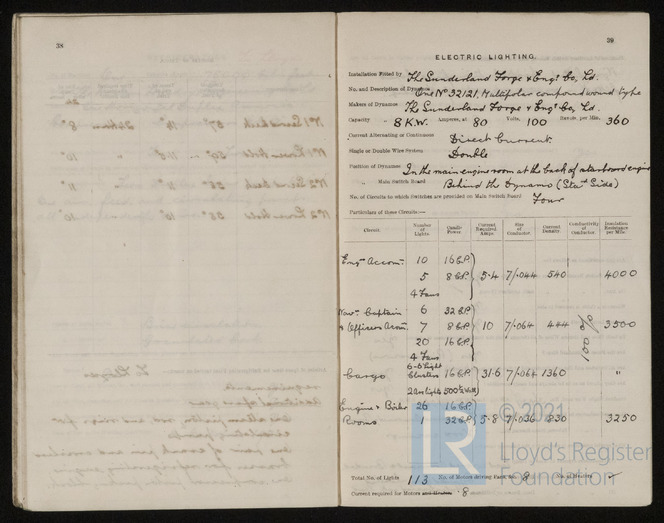 38
39
ELECTRIC LIGHTING.
Installation Fitted by The Sunderland Forge & Engs Co, Ld.
No. and Description of Dynamos One No 32121, Multipolar compound wound type
Makers of Dynamos The Sunderland Forge & Engs Co, Ld.
Capacity 8 K.W. Amperes, at 80 Volts, 100 Revols. per Min. 360
Current Alternating or Continuous Direct Current
Single or Double Wire System Double
Position of Dynamos In the main engine room at the back of starboard engine
" Main Switch Board Behind the Dynamo (Star Side)
No. of Circuits to which Switches are provided on Main Switch Board Four
Particulars of these Circuits:—
Circuit. Number of Lights. Candle Power. Current Required Amps. Size of Conductor. Current Density. Conductivity of Conductor. Insulation Resistance per Mile.
Engrs Accomn 10 16 C.P.
5 8 C.P. 5.4 7/.044 540 4000
4 Fans
Navn Captain 6 32 C.P.
& Officers Accomn 7 8 C.P. 10 7/.064 444 100 % 3500
20 16 C.P.
4 Fans
Cargo 6-5 light Clusters 16 C.P. 31.6 7/.064 1360 "
2 Arc Lights 500 Watt
Engine & Boiler 26 16 C.P.
Rooms 1 32 C.P. 5.8 7/.036 830 3250
Total No. of Lights 113 No. of Motors driving Fans, &c. 8 No. of Heaters
Current required for Motors and Heaters 8
© 2021
LR
Lloyd's Register
Foundation